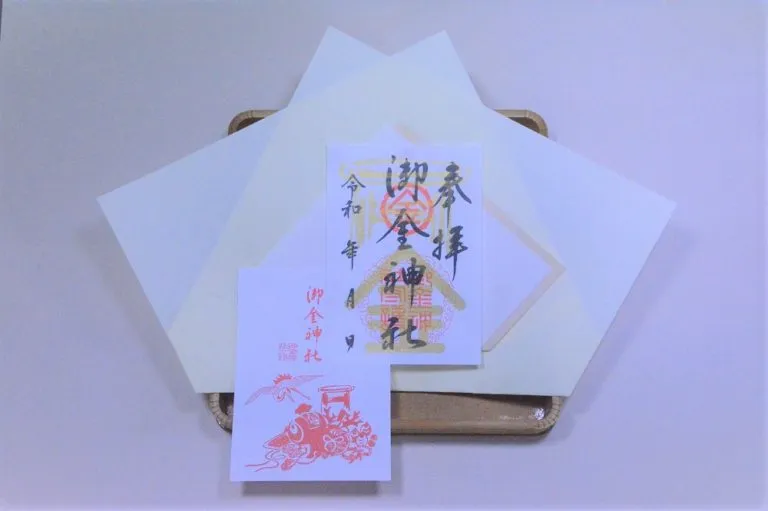 奉拝
御金神社
令和 年 月 日
御金神社